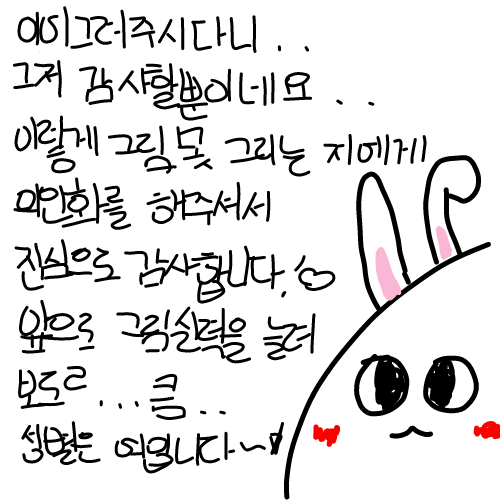 이이그려주시다니..
그저 감사할뿐이네요..
이렇게 그림 못 그리는 저에게
미안화를 해주셔서
진심으로 감사합니다,
앞으로 그림실력을 늘려
보도록...큼..
성별은 여입니다~